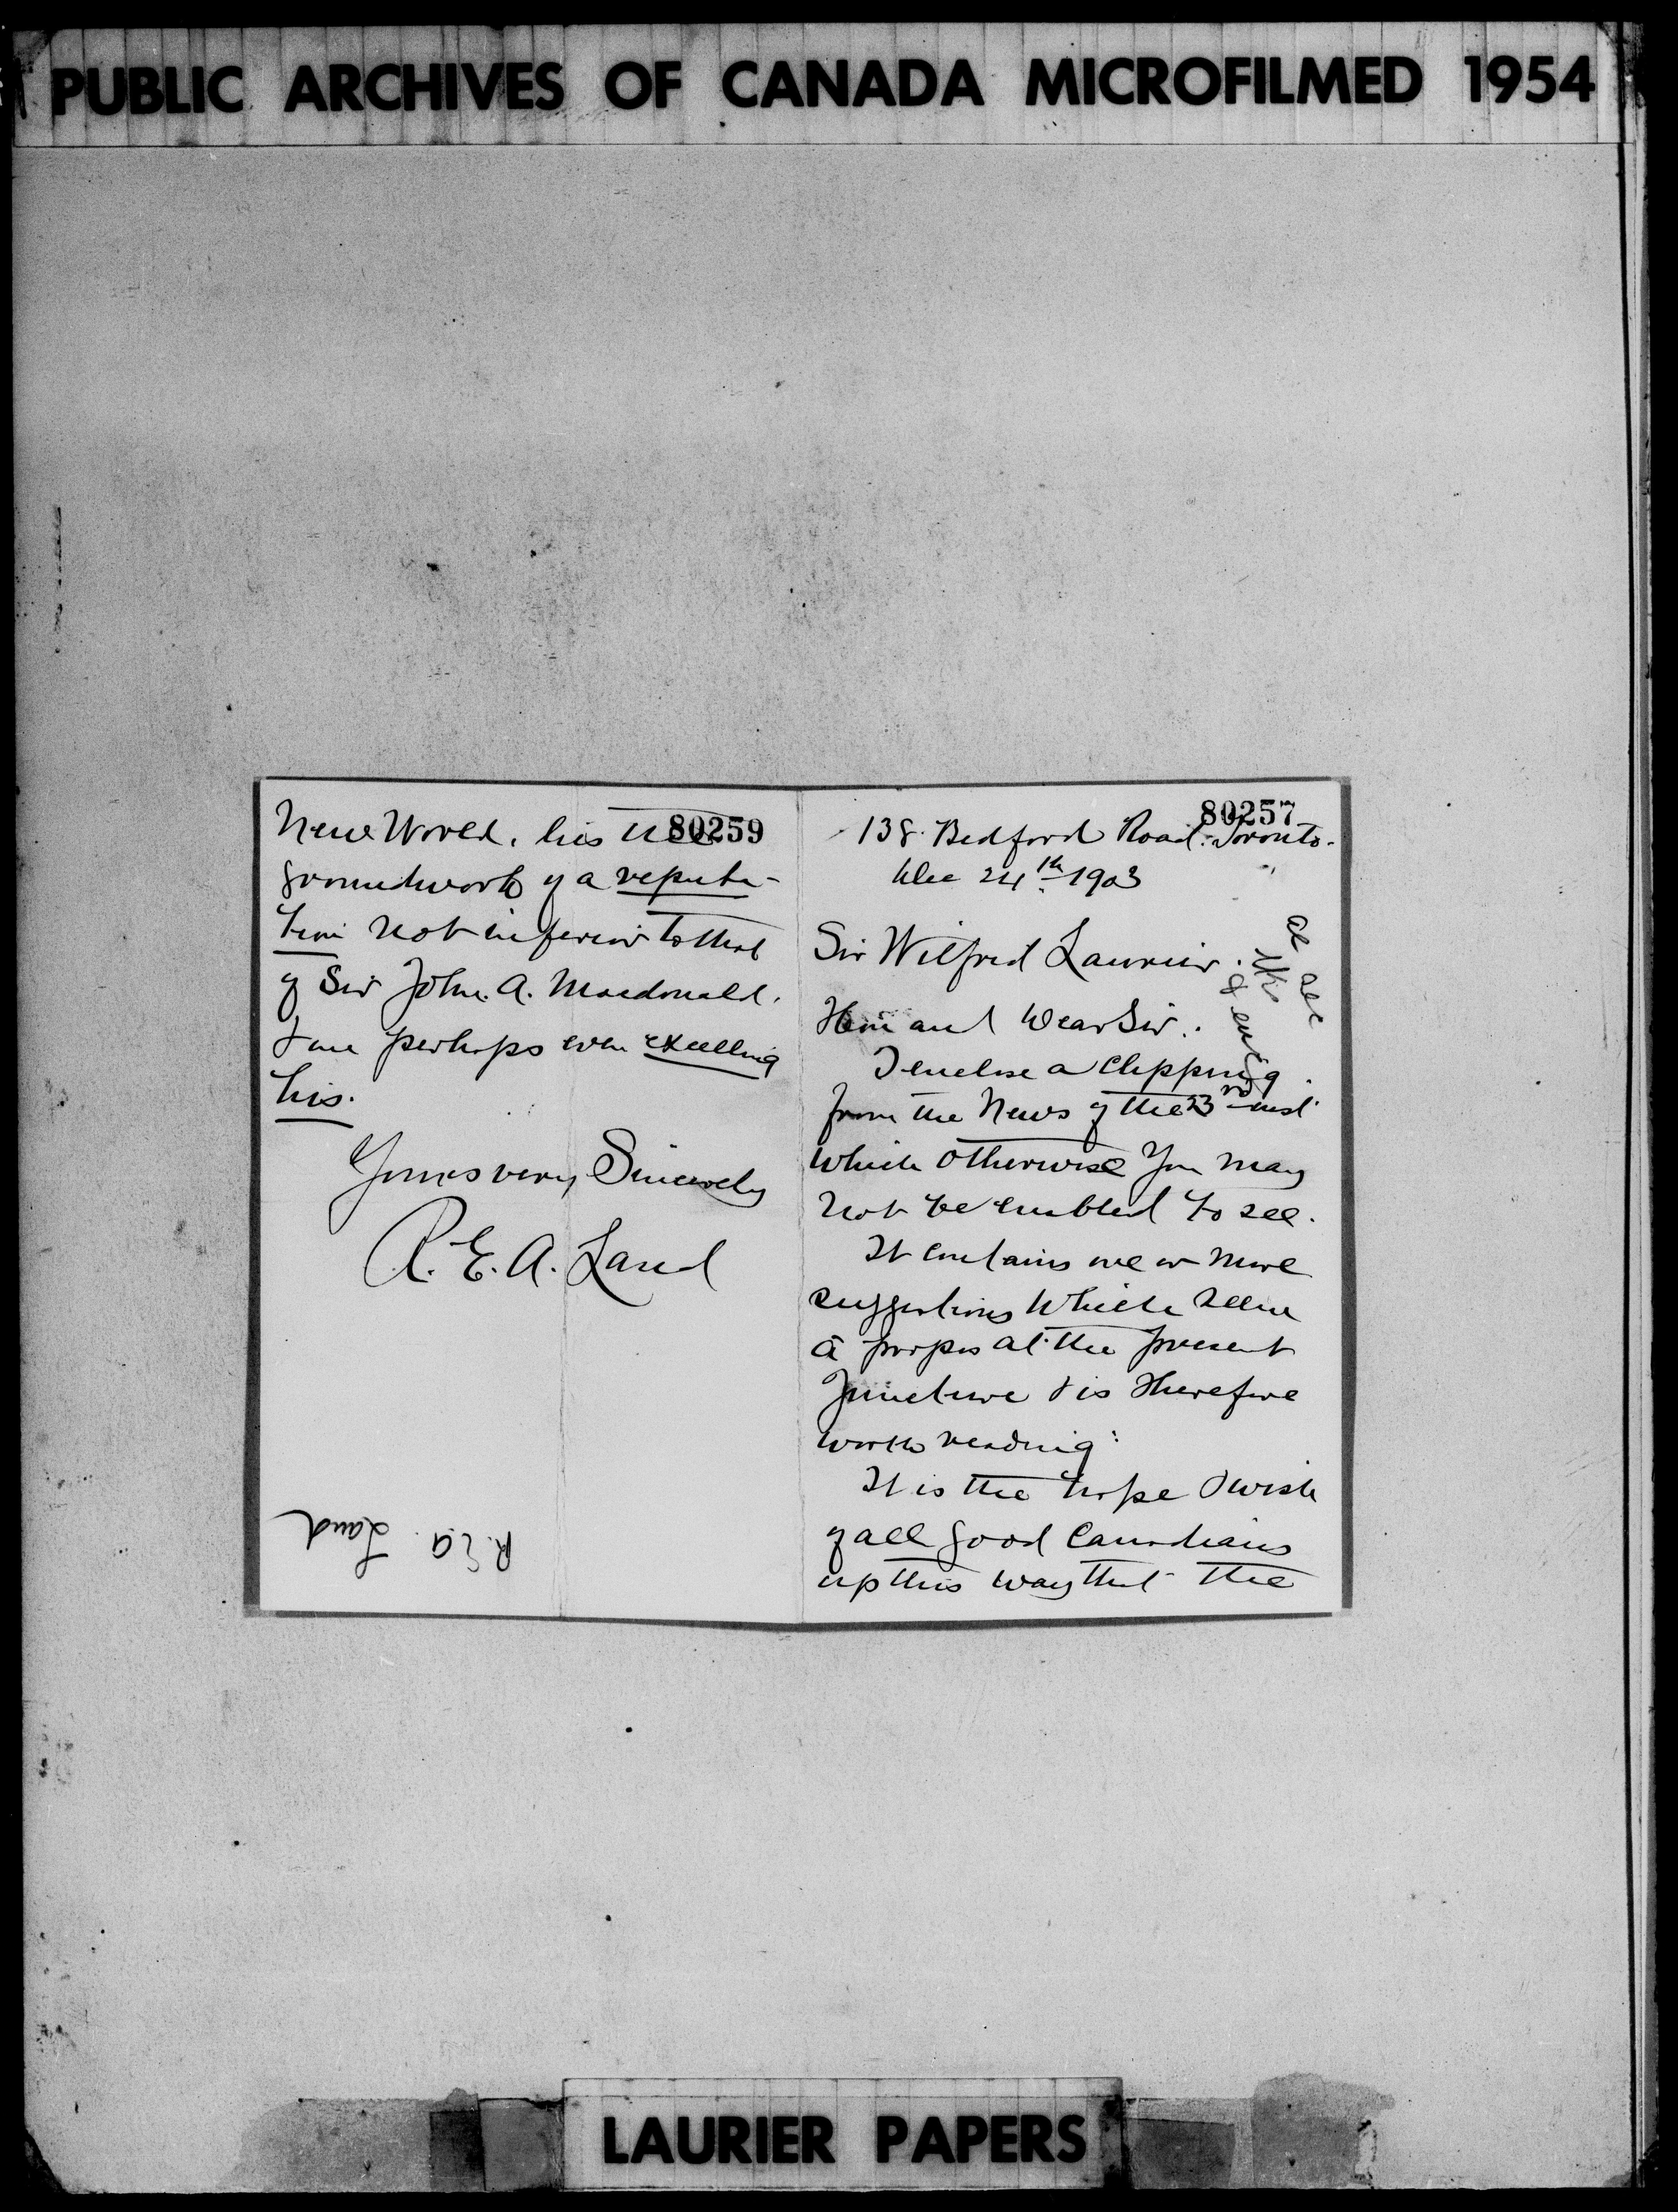 PUBLIC ARCHIVES OF CANADA MICROFILMED 1954
80259
New World, lies the
groundwork of a reputa-
tion not inferior to that
of Sir John. A. Macdonald.
& one perhaps even excelling
his.
Yours very Sincerely
R. E. A. Land
R. E. A. Land
80257
138 Bedford Road. Toronto.
Dec 24th 1903
Sir Wilfred Laurier.
Hon and Dear Sir.
I enclose a clipping
from the News of the 23rd inst.
which otherwise you may
not be enabled to see.
It contains one or more
suggestions which seem
à propos at the present
juncture & is therefore
worth reading:
It is the hope & wish
of all good Canadians
up this way that the
LAURIER PAPERS